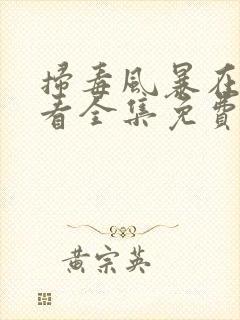 掃毒風暴在
看全集免費
黃宗英